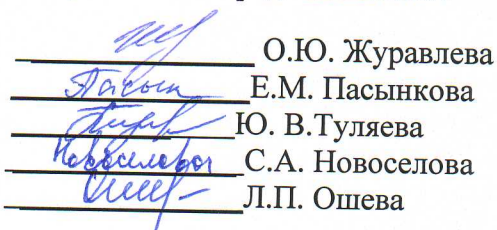 О.Ю. Журавлева
Е.М. Пасынкова
Ю. В.Туляева
Новоселова С.А. Новоселова
Л.П. Ошева